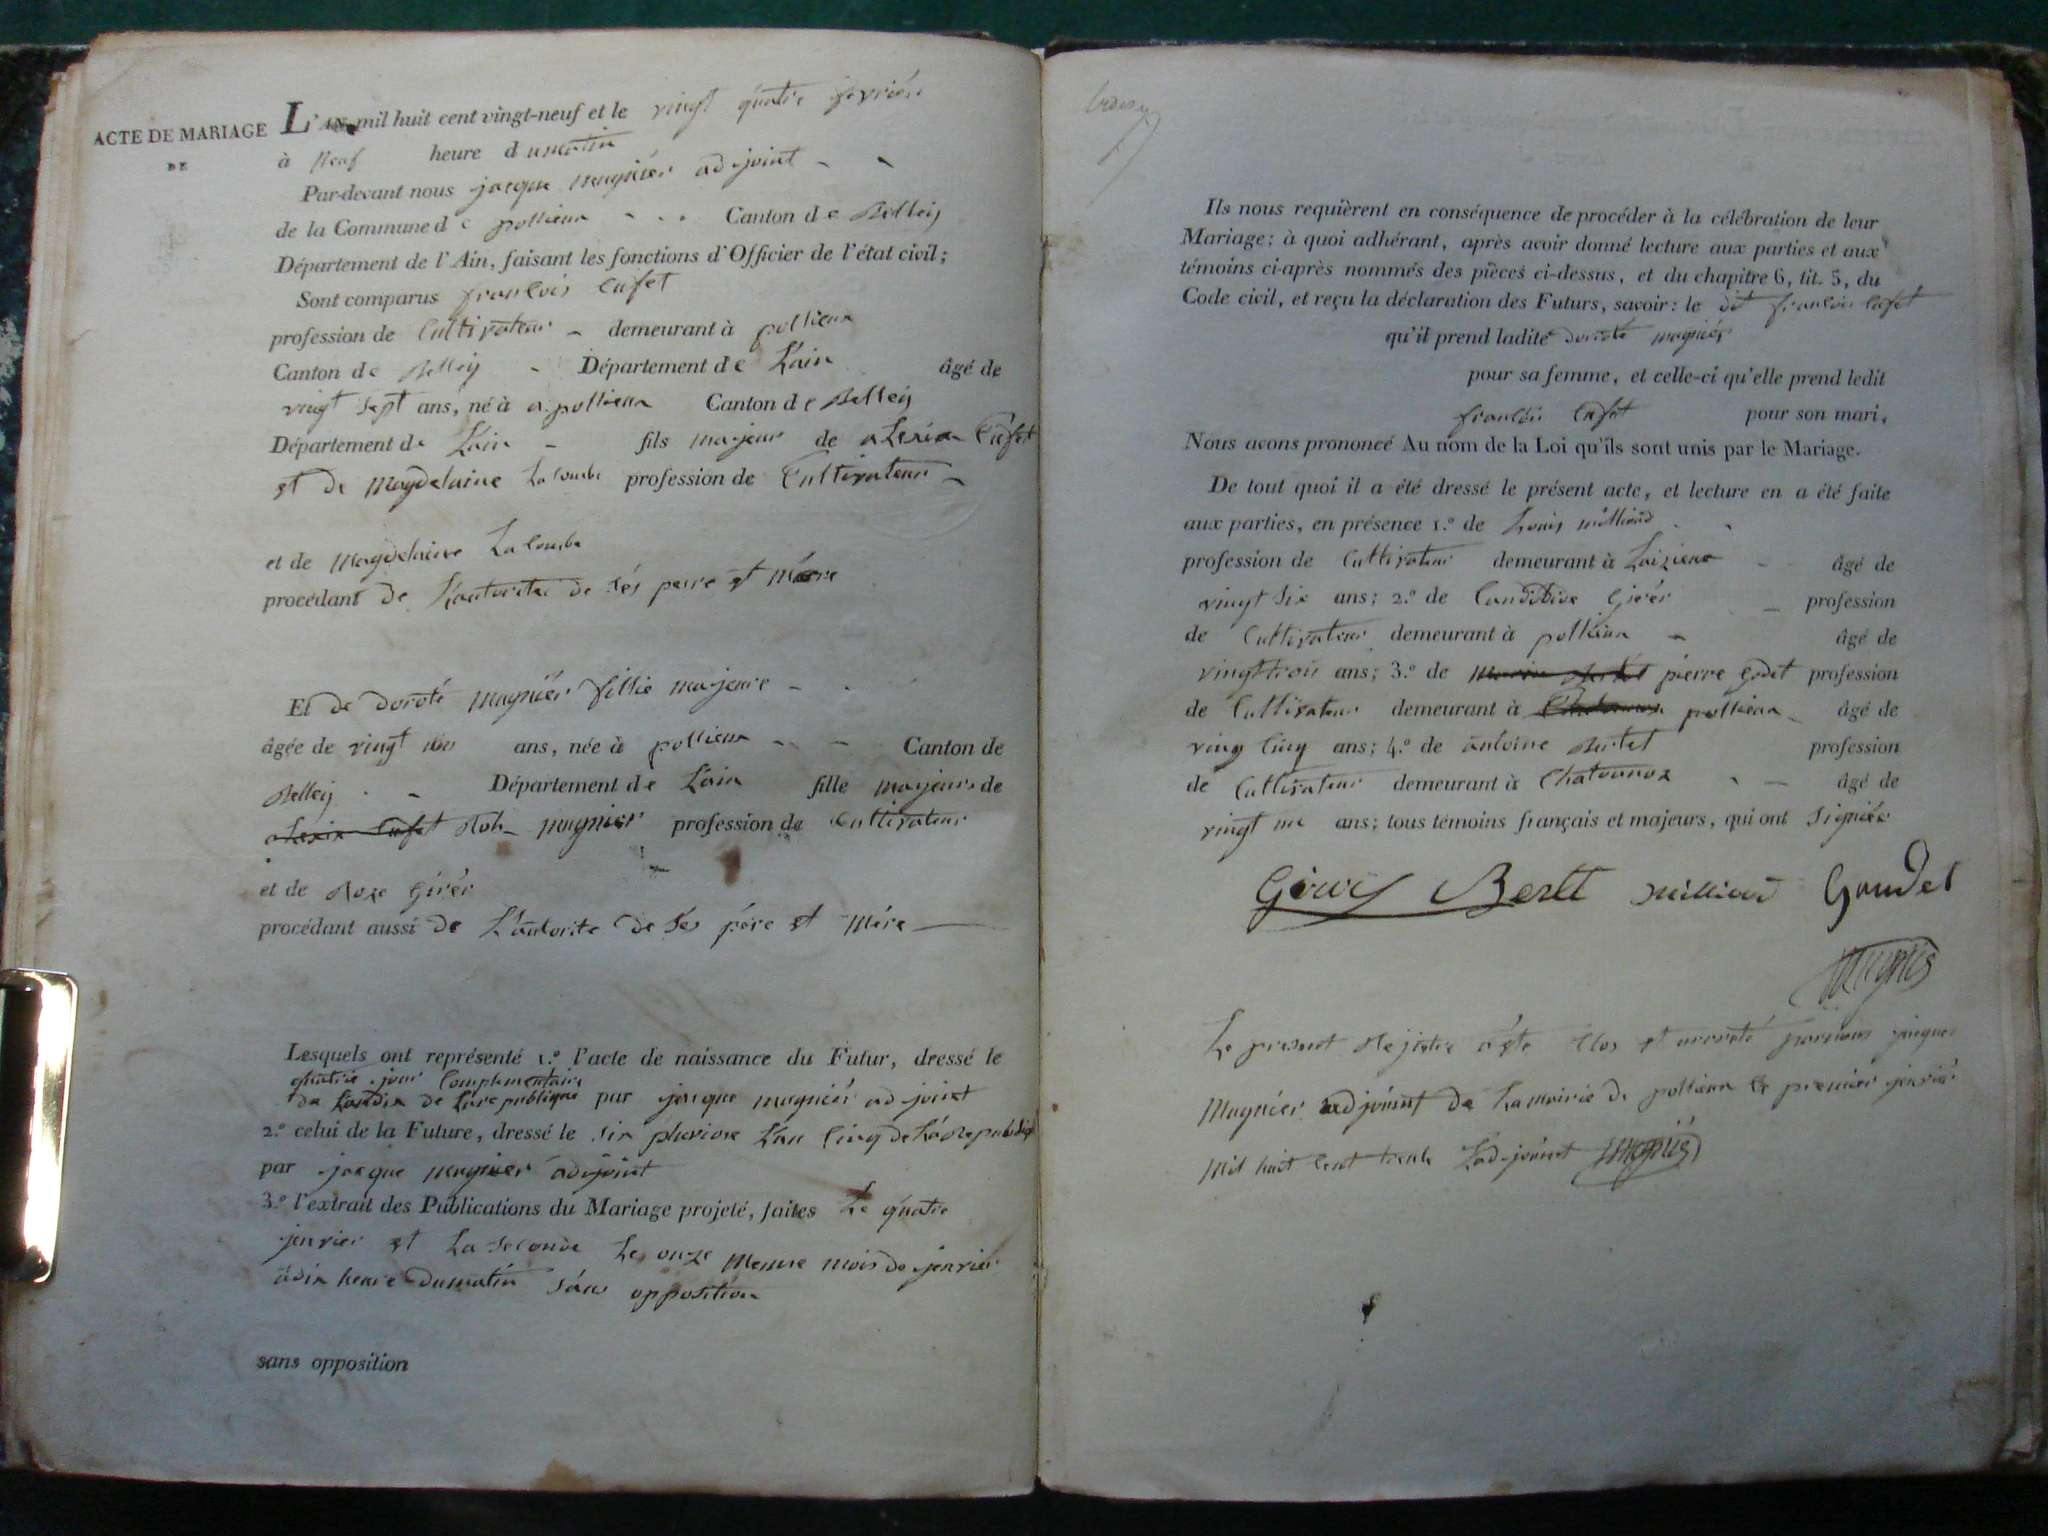 ACTE DE MARIAGE
DE
L'AN mil huit cent vingt-neuf et le vingt quatre fevrier
à Neuf heure dumatin
Par-devant nous jacque magnier adjoint
de la Commune de pollieux Canton de Belley
Département de l'Ain, faisant les fonctions d'Officier de l'état civil;
Sont comparus francois Cufet
profession de Cultivateur demeurant à pollieux
Canton de Belley Département de L'ain âgé de
vingt sept ans, né à a pollieux Canton de Belley
Département de Lain fils majeur de alexis Cufet
et de Magdelaine Lacombe profession de Cultivateur
et de Magdelaine Lacombe
procédant de Lautorite de ses perre et Mere
Et de doroté magnier fillie majeure
âgée de vingt ans, née à pollieux Canton de
Belley Département de L'ain fille majeure de
magnier profession de Cultivateur
et de Roze Girer
procédant aussi de L'autorite de ses pére et Mére
Lesquels ont représenté 1.º l'acte de naissance du Futur, dressé le
quatrie jour Complementaire
de Landix de Larepublique par jacque magnier adjoint
2.º celui de la Future, dressé le six pluviose L'an Cinq de LaRepublique
par jacque magnier adjoint
3.º l'extrait des Publications du Mariage projeté, faites Le quatre
jenvier et La seconde Le onze Meme mois de jenvier
adix heure dumatin sans opposition
sans opposition
Ils nous requièrent en conséquence de procéder à la célébration de leur
Mariage; à quoi adhérant, après avoir donné lecture aux parties et aux
témoins ci-après nommés des pièces ci-dessus, et du chapitre 6, tit. 5, du
Code civil, et reçu la déclaration des Futurs, savoir: le dit francois Cufet
qu'il prend ladite doroté magnier
pour sa femme, et celle-ci qu'elle prend ledit
francois Cufet pour son mari,
Nous avons prononcé Au nom de la Loi qu'ils sont unis par le Mariage.
De tout quoi il a été dressé le présent acte, et lecture en a été faite
aux parties, en présence 1.º de Louis milliand
profession de Cultivateur demeurant à Laizieux âgé de
vingt six ans; 2.º de Girer profession
de Cultivateur demeurant à pollieux âgé de
vingttrois ans; 3.º de pierre godet profession
de Cultivateur demeurant à pollieux âgé de
ving Cinq ans; 4.º de antoine Bertet profession
de Cultivateur demeurant à Chatonnox âgé de
vingt ans; tous témoins français et majeurs, qui ont signiés
Girer Berlt milliand Goudet
Magnier
Le present Rejistre aete Clos et arreté parnous jacque
Magnier adjoint de Lamairie de pollieux Le premier jenvier
Mil huit Cent trente L'adjoint Magnier